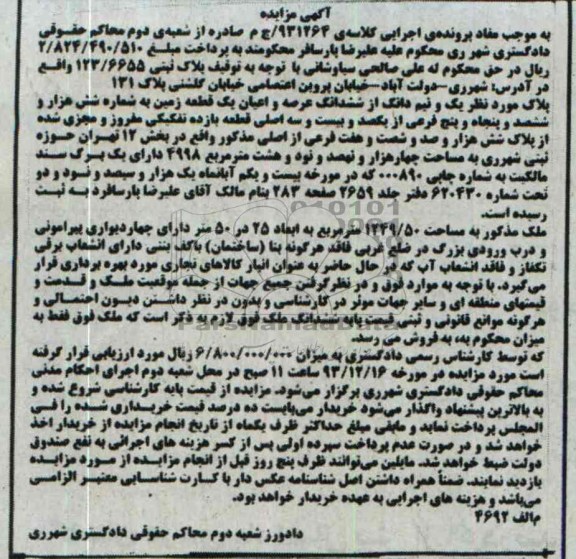 آگهی مزایده
به موجب مفاد پرونده‌ی اجرایی کلاسه‌ی ۹۳۱۲۶۴/ج م صادره از شعبه‌ی دوم محاکم حقوقی
دادگستری شهر ری محکوم علیه علیرضا پارسافر محکومند به پرداخت مبلغ ۲/۸۲۴/۴۹۰/۵۱۰
ریال در حق محکوم له علی صالحی سیاوشانی با توجه به توقیف پلاک ثبتی ۱۲۳/۶۶۵۵ واقع
در آدرس: شهرری-دولت آباد-خیابان پروین اعتصامی خیابان گلشنی پلاک ۱۳۱
پلاک مورد نظر یک و نیم دانگ از ششدانگ عرصه و اعیان یک قطعه زمین به شماره شش هزار و
ششصد و پنجاه و پنج فرعی از یکصد و بیست و سه اصلی قطعه یازده تفکیکی مفروز و مجزی شده
از پلاک شش هزار و صد و شصت و هفت فرعی از اصلی مذکور واقع در بخش ۱۲ تهران حوزه
ثبتی شهرری به مساحت چهارهزار و نهصد و نود و هشت مترمربع ۴۹۹۸ دارای یک برگ سند
مالکیت به شماره چاپی ۰۰۰۸۹۰ که در مورخه بیست و یکم آبانماه یک هزار و سیصد و نود و دو
تحت شماره ۶۲۰۴۳۰ دفتر جلد ۲۶۵۹ صفحه ۲۸۳ بنام مالک آقای علیرضا پارسافرد به ثبت
رسیده است.
ملک مذکور به مساحت ۱۲۴۹/۵۰ مترمربع به ابعاد ۲۵ در ۵۰ متر دارای چهاردیواری پیرامونی
و درب ورودی بزرگ در ضلع غربی فاقد هرگونه بنا (ساختمان) باکف بتنی دارای انشعاب برقی
تکفاز و فاقد انشعاب آب که در حال حاضر به عنوان انبار کالاهای تجاری مورد بهره برداری قرار
می‌گیرد. با توجه به موارد فوق و در نظرگرفتن جمیع جهات از جمله موقعیت ملک و قدمت و
قیمتهای منطقه ای و سایر جهات موثر در کارشناسی و بدون در نظر داشتن دیون احتمالی و
هرگونه موانع قانونی و ثبتی قیمت پایه ششدانگ ملک فوق لازم به ذکر است که ملک فوق فقط به
میزان محکوم به، به فروش می رسد.
که توسط کارشناس رسمی دادگستری به میزان ۶/۸۰۰/۰۰۰/۰۰۰ ریال مورد ارزیابی قرار گرفته
است مورد مزایده در مورخه ۹۳/۱۲/۱۶ ساعت ۱۱ صبح در محل شعبه دوم اجرای احکام مدنی
محاکم حقوقی دادگستری شهرری برگزار می‌شود. مزایده از قیمت پایه کارشناسی شروع شده و
به بالاترین پیشنهاد واگذار می‌شود خریدار می‌بایست ده درصد قیمت خریداری شده را فی
المجلس پرداخت نماید و مابقی مبلغ حداکثر ظرف یکماه از تاریخ انجام مزایده از خریدار اخذ
خواهد شد و در صورت عدم پرداخت سپرده اولی پس از کسر هزینه های اجرائی به نفع صندوق
دولت ضبط خواهد شد. مایلین می‌توانند ظرف پنج روز قبل از انجام مزایده از مورد مزایده
بازدید نمایند. ضمناً همراه داشتن اصل شناسنامه عکس دار یا کارت شناسایی معتبر الزامی
می‌باشد و هزینه های اجرایی به عهده خریدار خواهد بود.
م‌الف ۴۶۹۲
دادورز شعبه دوم محاکم حقوقی دادگستری شهرری